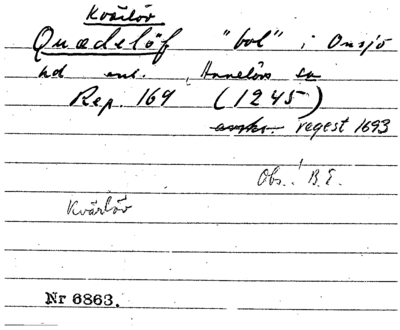 Kvärlöv
Quædelöf "bol" i Onsjö
hd enl. Annelövs sn
Rep. 169 (1245)
avskr. regest 1693
Obs.! B.E.
Kvärlöv
Nr 6863.